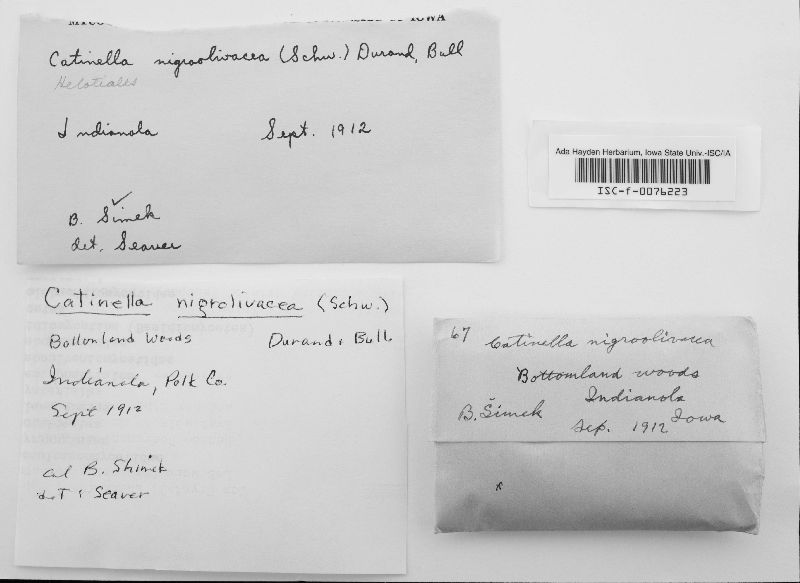 OF IOWA
Catinella nigroolivacea (Schw.) Durand, Bull
Helotiales
Indianola Sept. 1912
B. Šimek
det. Seaver
Ada Hayden Herbarium, Iowa State Univ.-ISC/IA
ISC-f-0076223
Catinella nigrolivacea (Schw.)
Bottomland Woods Durand, Bull
Indianola, Polk Co.
Sept 1912
Col B. Shimek
det: Seaver
67 Catinella nigroolivacea
Bottomland woods
Indianola
B. Šimek Iowa
Sep. 1912
x